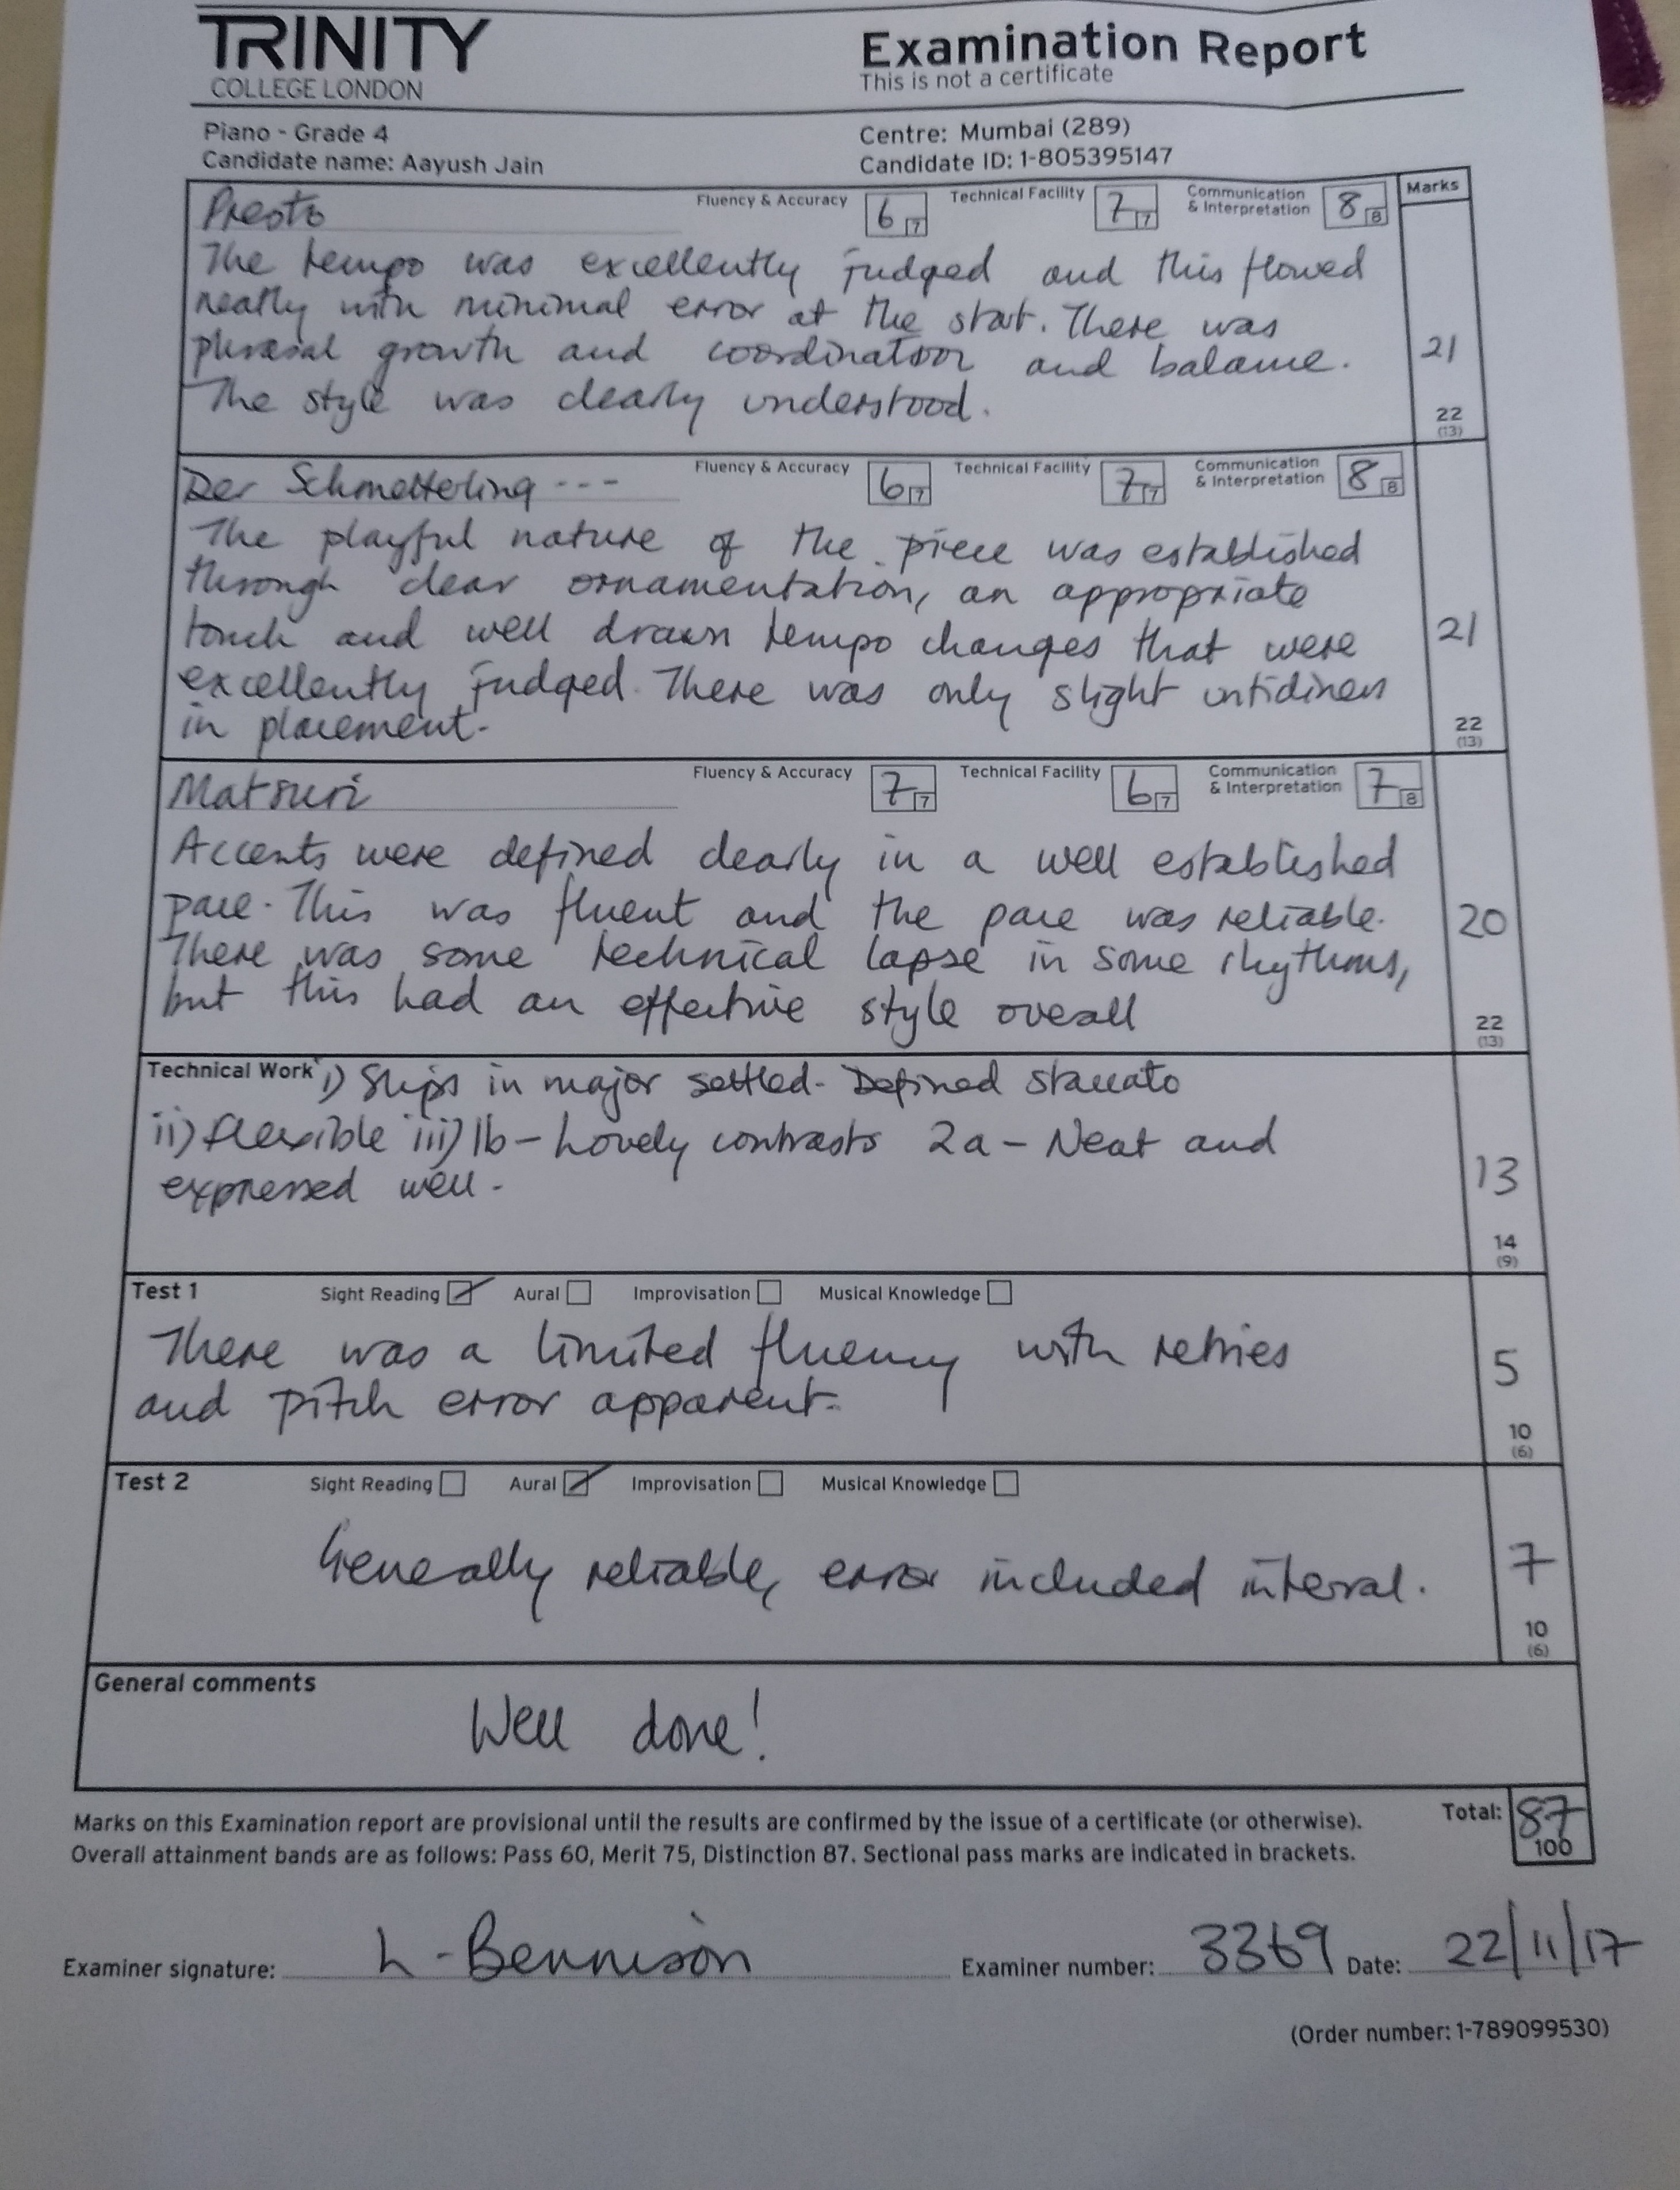 TRINITY
COLLEGE LONDON
Examination Report
This is not a certificate
Piano - Grade 4
Candidate name: Aayush Jain
Centre: Mumbai (289)
Candidate ID: 1-805395147
Marks
Presto Fluency & Accuracy 6 7 Technical Facility 7 7 Communication & Interpretation 8 8
The tempo was excellently judged and this flowed
neatly with minimal error at the start. There was
phrasal growth and coordination and balance.
The style was clearly understood.
21
22
(13)
Der Schmetterling --- Fluency & Accuracy 6 7 Technical Facility 7 7 Communication & Interpretation 8 8
The playful nature of the piece was established
through clear ornamentation, an appropriate
touch and well drawn tempo changes that were
excellently judged. There was only slight untidiness
in placement.
21
22
(13)
Matsuri Fluency & Accuracy 7 7 Technical Facility 6 7 Communication & Interpretation 7 8
Accents were defined clearly in a well established
pace. This was fluent and the pace was reliable.
There was some technical lapse in some rhythms,
but this had an effective style overall
20
22
(13)
Technical Work i) Slips in major settled. Defined staccato
ii) flexible iii) 1b - Lovely contrasts 2a - Neat and
expressed well.
13
14
(9)
Test 1 Sight Reading Aural Improvisation Musical Knowledge
There was a limited fluency with retries
and pitch error apparent.
5
10
(6)
Test 2 Sight Reading Aural Improvisation Musical Knowledge
Generally reliable, error included interval.
7
10
(6)
General comments
Well done!
Marks on this Examination report are provisional until the results are confirmed by the issue of a certificate (or otherwise).
Overall attainment bands are as follows: Pass 60, Merit 75, Distinction 87. Sectional pass marks are indicated in brackets.
Total: 87
100
Examiner signature: L-Bennison Examiner number: 3369 Date: 22/11/17
(Order number: 1-789099530)